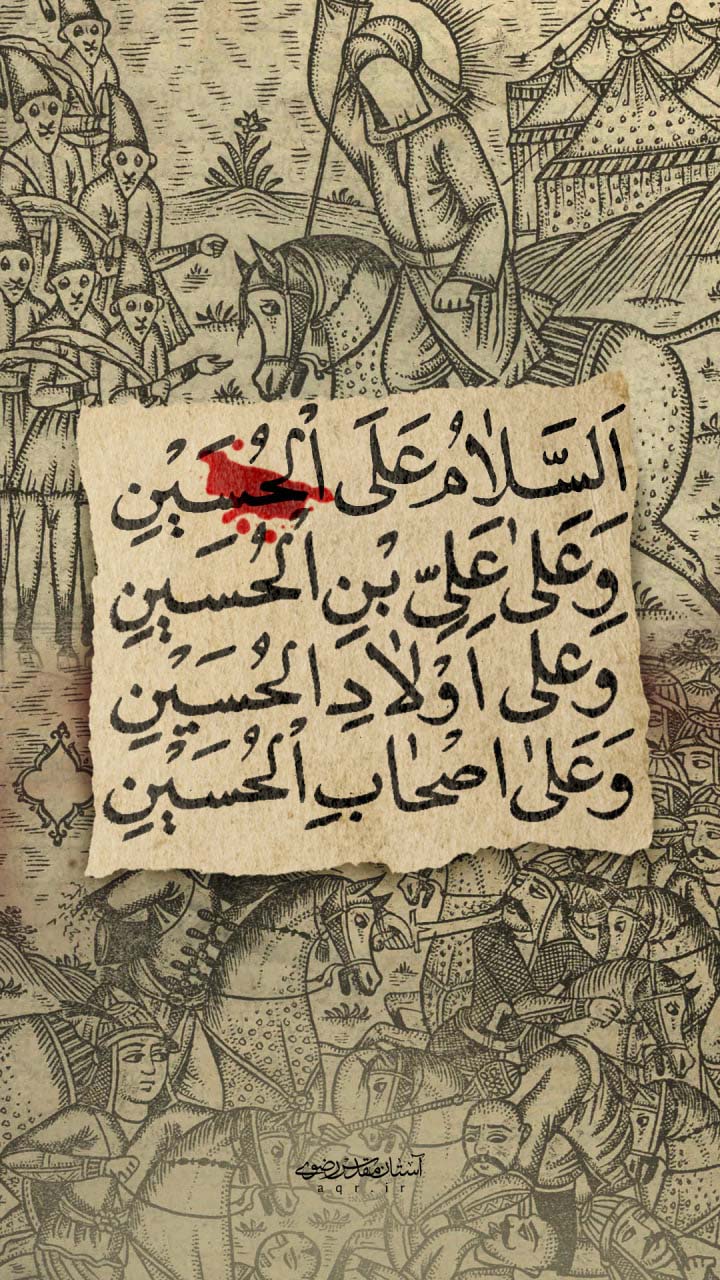 اَلسَّلاٰمُ عَلَى اْلحُسَيْنِ
وَعَلىٰ عَلِيِّ بْنِ الحُسَينِ
وَعلى اَوْلاٰدِ الحُسَيْنِ
وَعَلىٰ اصْحٰابِ اْلحُسَيْنِ
آستان مقدس رضوی
aqr.ir